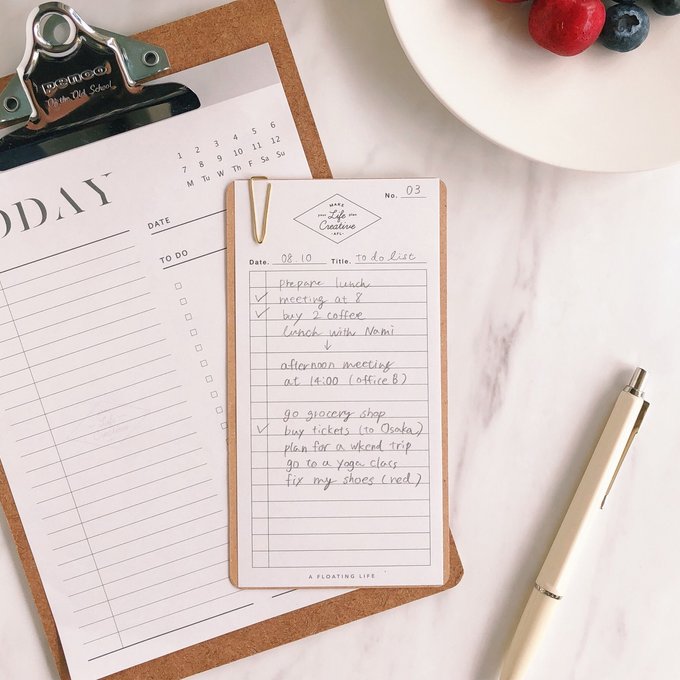 penco
Of the Old School
ODAY
1 2 3 4 5 6
7 8 9 10 11 12
M Tu W Th F Sa Su
DATE
TO DO
No. 03
MAKE
your Life plan
Creative
-AFL-
Date. 08.10 Title. to do list
prepare lunch
✓ meeting at 8
✓ buy 2 coffee
lunch with Nami
↓
afternoon meeting
at 14:00 (office B)
go grocery shop
✓ buy tickets (to Osaka)
plan for a wkend trip
go to a yoga class
fix my shoes (red)
A FLOATING LIFE